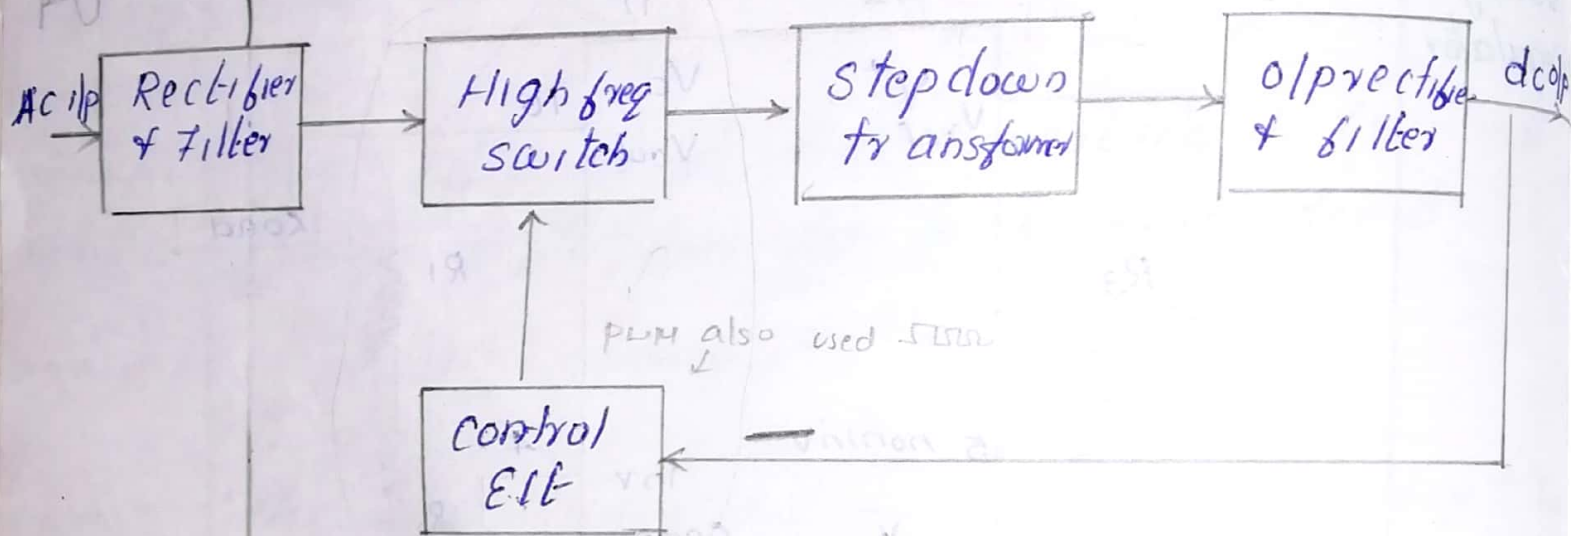 AC i/p
Rectifier
& Filter
High freq
switch
Step down
transformer
o/p rectifie
& filter
dc o/p
PWM also used
Control